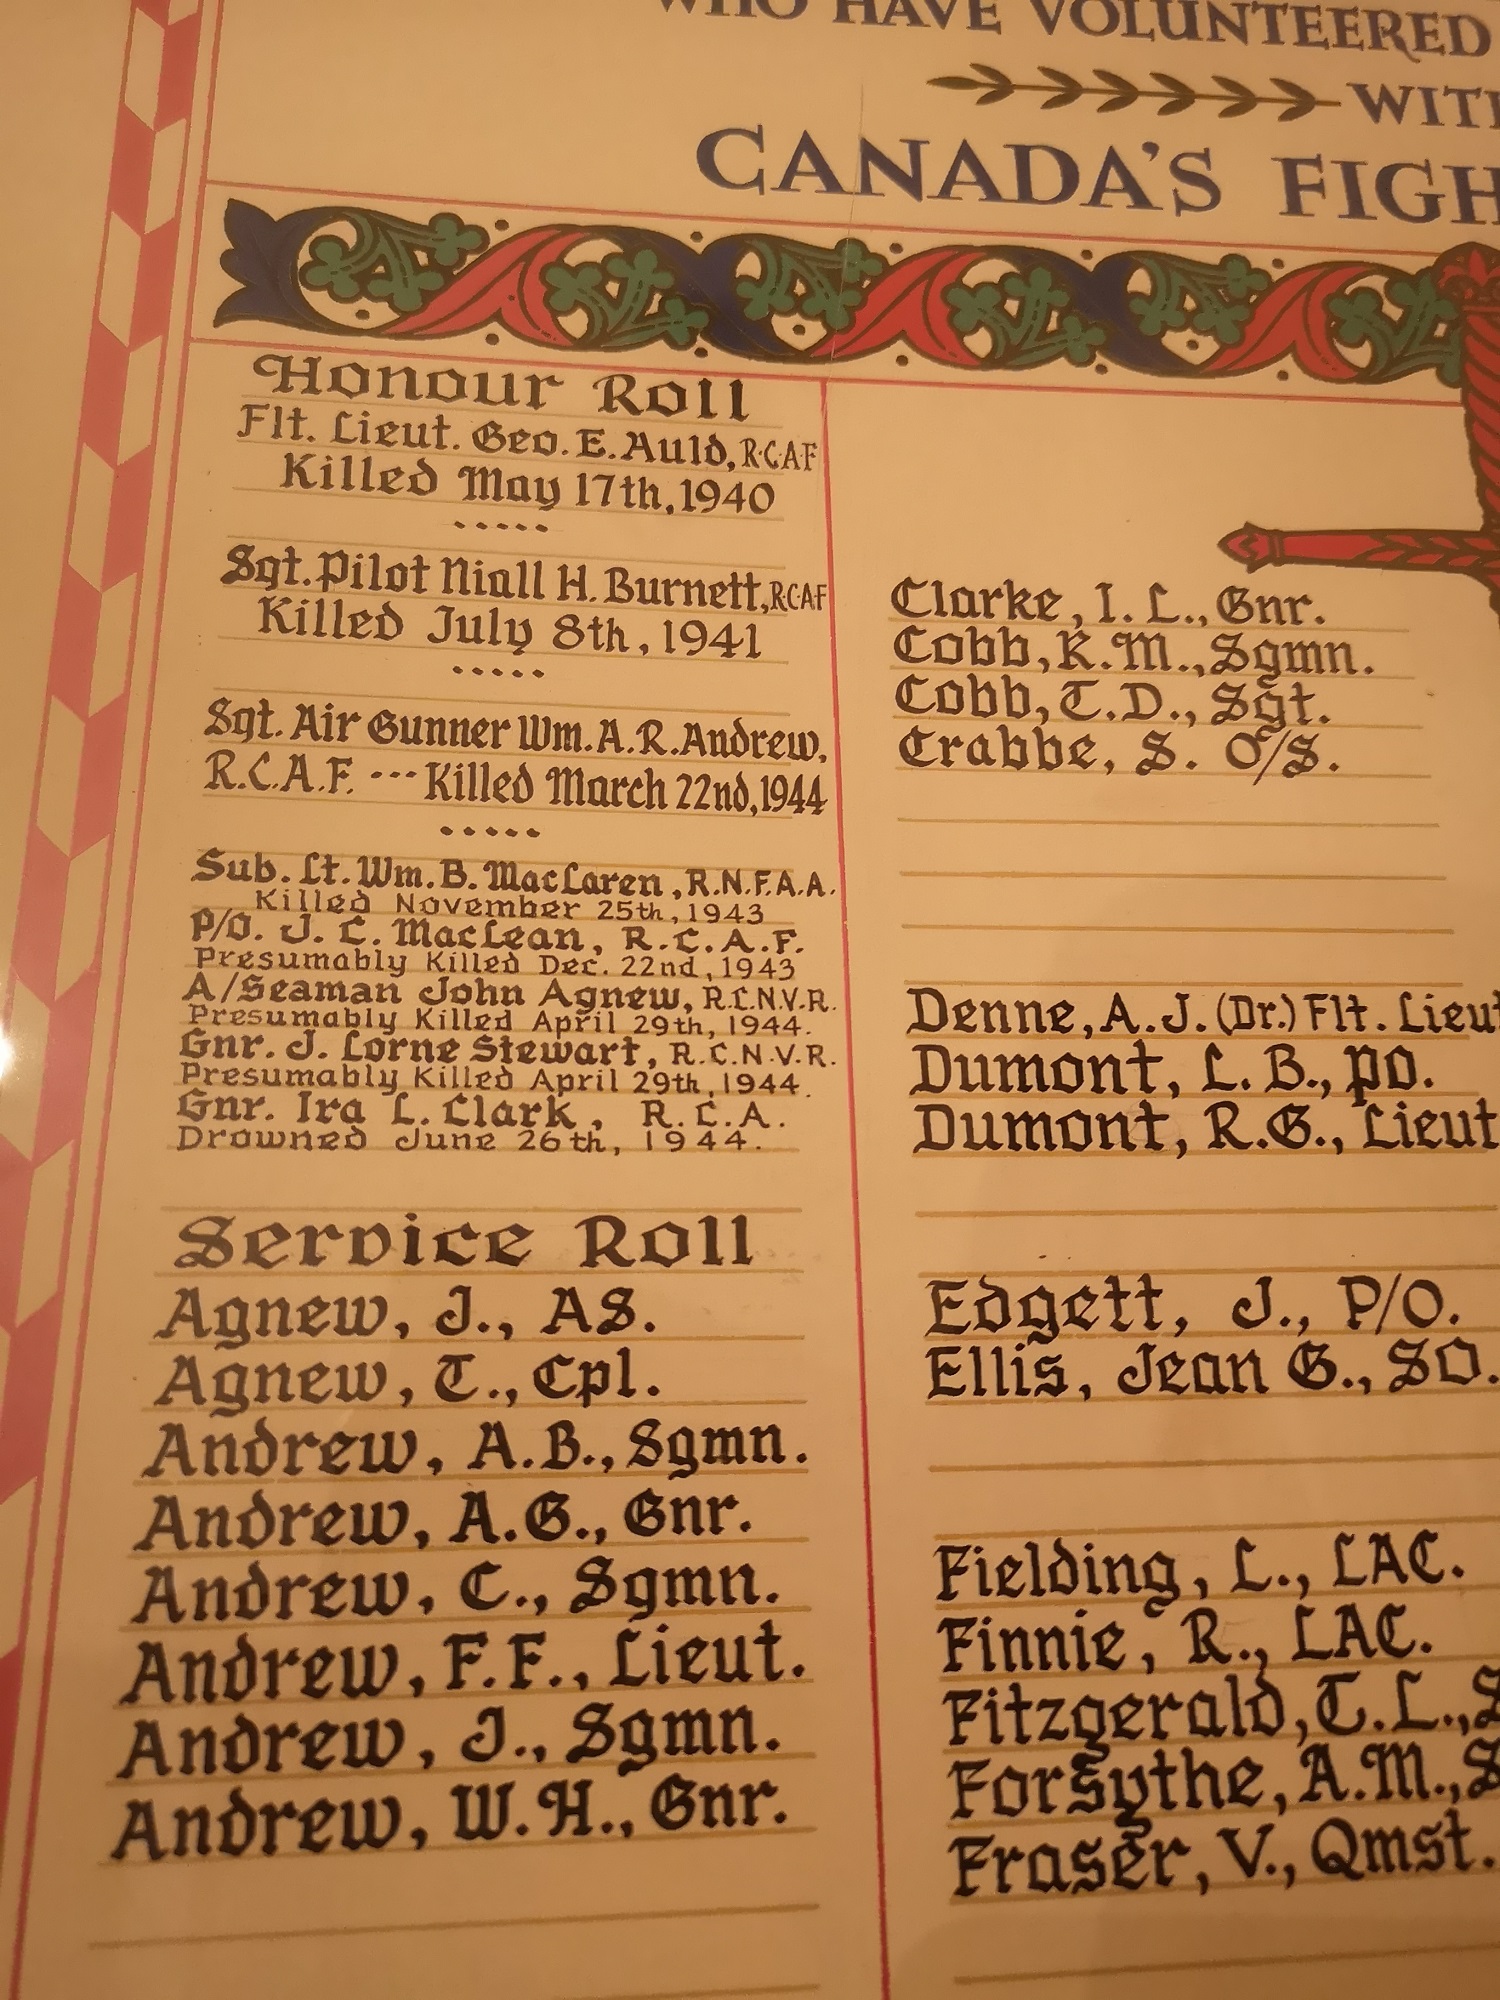 WHO HAVE VOLUNTEERED
WITH
CANADA'S FIGH
Honour Roll
Flt. Lieut. Geo. E. Auld, R.C.A.F
Killed May 17th, 1940
Sgt. Pilot Niall H. Burnett, R.C.A.F
Killed July 8th, 1941
Sgt. Air Gunner Wm. A. R. Andrew,
R.C.A.F. --- Killed March 22nd, 1944
Sub. Lt. Wm. B. MacLaren, R.N.F.A.A.
Killed November 25th, 1943
P/O. J. C. MacLean, R.C.A.F.
Presumably Killed Dec. 22nd, 1943
A/Seaman John Agnew, R.C.N.V.R.
Presumably Killed April 29th, 1944.
Gnr. J. Lorne Stewart, R.C.N.V.R.
Presumably Killed April 29th, 1944.
Gnr. Ira L. Clark, R.C.A.
Drowned June 26th, 1944.
Service Roll
Agnew, J., AS.
Agnew, T., Cpl.
Andrew, A.B., Sgmn.
Andrew, A.G., Gnr.
Andrew, C., Sgmn.
Andrew, F.F., Lieut.
Andrew, J., Sgmn.
Andrew, W.H., Gnr.
Clarke, I. L., Gnr.
Cobb, K.M., Sgmn.
Cobb, T.D., Sgt.
Crabbe, S. O/S.
Denne, A.J. (Dr.) Flt. Lieut
Dumont, L. B., PO.
Dumont, R.G., Lieut
Edgett, J., P/O.
Ellis, Jean G., SO.
Fielding, L., LAC.
Finnie, R., LAC.
Fitzgerald, T.L., S
Forsythe, A.M., S
Fraser, V., Qmst.